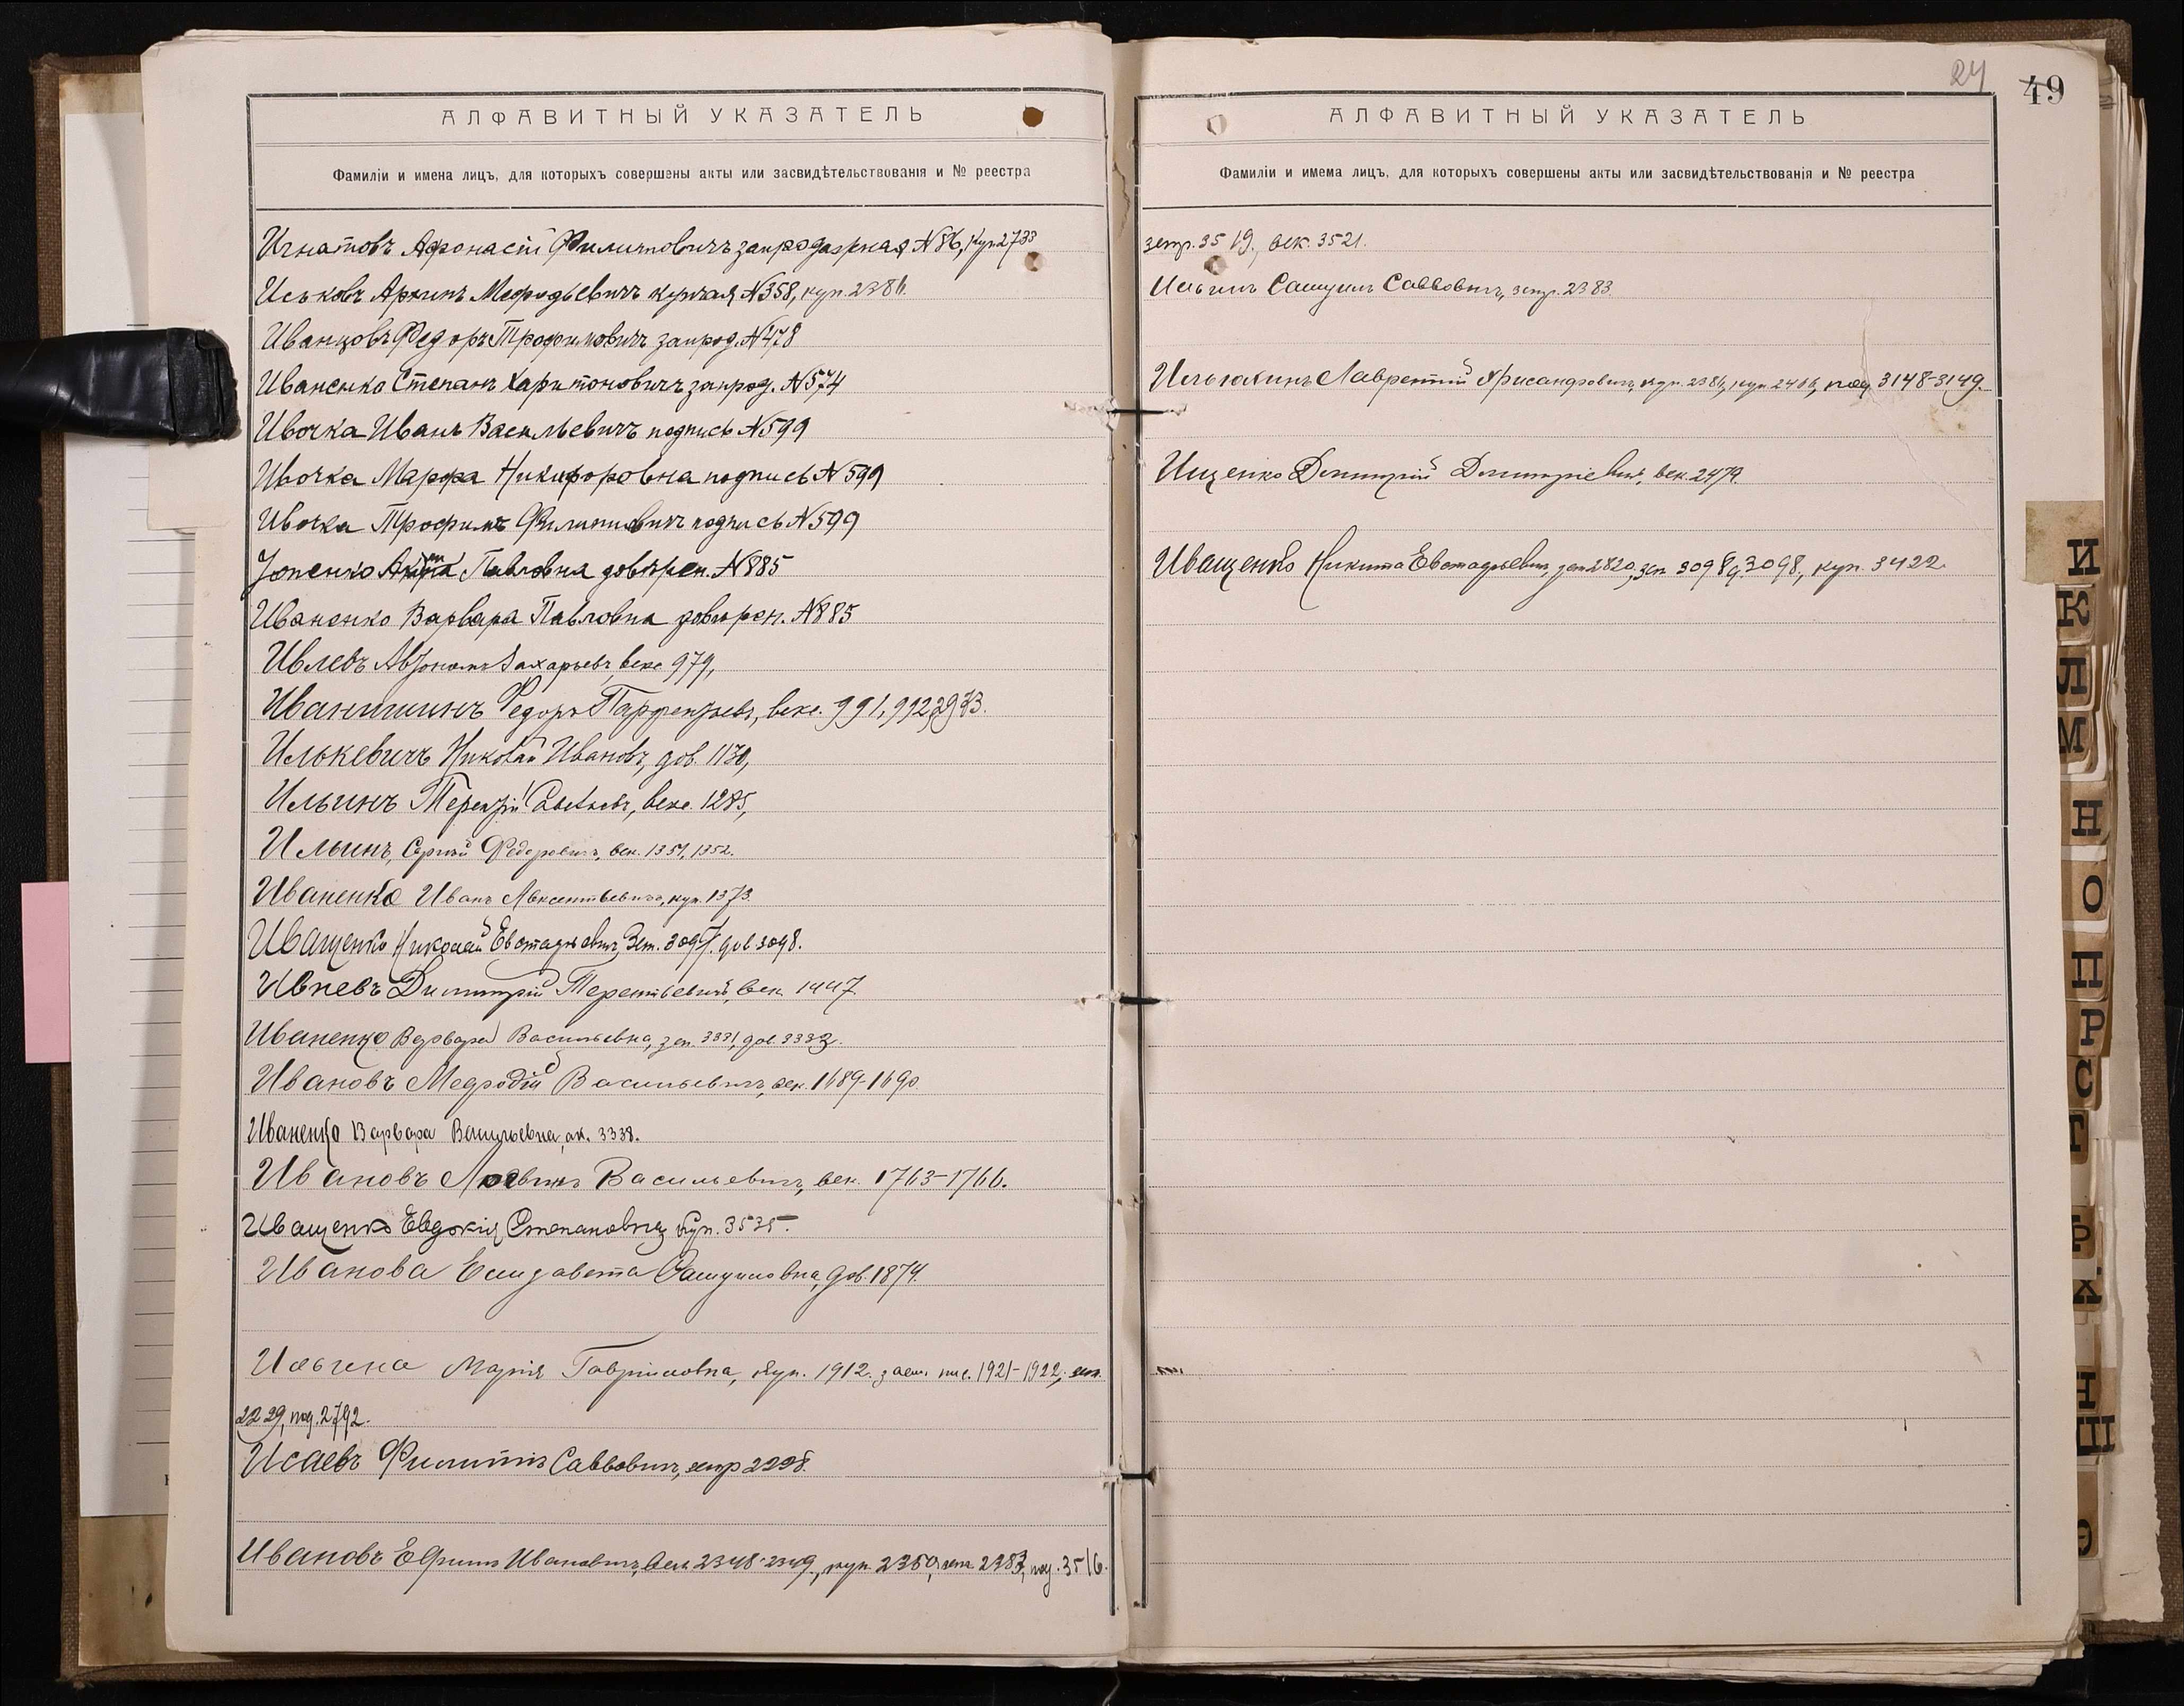 АЛФАВИТНЫЙ УКАЗАТЕЛЬ
Фамиліи и имена лицъ, для которыхъ совершены акты или засвидѣтельствованія и № реестра
Игнатовъ Афонасій Филиповичъ запродажная №86, куп 2733
Иськовъ Архипъ Мефодьевичъ купчая №358, куп. 2386.
Иванцовъ Федоръ Трофимовичъ запрод. №478
Иваненко Степанъ Харитоновичъ запрод. №574
Ивочка Иванъ Васильевичъ подпись №599
Ивочка Марфа Никифоровна подпись №599
Ивочка Трофимъ Филиповичъ подпись №599
Павловна довѣрен. №885
Иваненко Варвара Павловна довѣрен. №885
Ивлевъ Автономъ Захарьевъ, векс 979,
Иванишинъ Федоръ Парфентьевъ, векс. 991, 992,
Илькевичъ Николай Ивановъ, дов. 1130,
Ильинъ Терентій векс. 1285,
Ильинъ, Сергѣй Федоровичъ, век. 1351, 1352.
Иваненко Иванъ Авксентьевичъ, куп. 1373.
Иващенко Николай Евстафьевичъ, Зап. 3097. дов 3098.
Ивлевъ Димитрій Терентьевичъ, век. 1447
Иваненко Варвара Васильевна, зап. 3331, дов. 3332.
Ивановъ Мефодій Васильевичъ, век. 1689-1690.
Иваненко Варвара Васильевна, ак. 3338.
Ивановъ Логвинъ Васильевичъ, век. 1763-1766.
Иващенко Евдокія Степановна куп. 3535.
Иванова Елизавета Самуиловна, дов. 1874.
Ильина Марія Гавриловна, куп. 1912. 1921-1922,
2229, под. 2792.
Исаевъ Филиппъ Савовичъ, запр 2228.
Ивановъ Ефимъ Ивановичъ, век 2348-2349, куп 2350, 2383, под. 3516.
24
49
АЛФАВИТНЫЙ УКАЗАТЕЛЬ
Фамиліи и имема лицъ, для которыхъ совершены акты или засвидѣтельствованія и № реестра
запр. 3519., век. 3521.
Ильинъ Самуилъ Савовичъ, запр. 2383.
Лаврентій Хрисанфовичъ, куп. 2386, куп. 2406, 3148-3149.
Ищенко Димитрій Димитріевичъ, век. 2479.
Иващенко Никита Евстафьевичъ, зап 2820, зап 3098, куп. 3422.
И
К
Л
М
Н
О
П
Р
С
Т
Х
Э